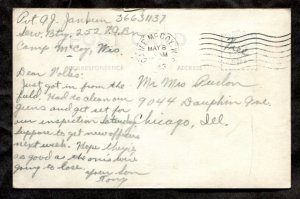 Pvt A.J. Janhun 36631137
Serv. Bty. 252 F.A. Bn.
Camp McCoy, Wis.
CAMP McCOY, WIS.
MAY 8
Free
CORRESPONDENCE
ADDRESS
Dear Folks:
Just got in from the
field. Had to clean our
guns and get set for
our inspection Saturday
Suppose to get new officers
next week. Hope they're
as good as the one's we're
going to lose.
your son
Tony
Mr Mrs
9044 Dauphin Ave.
Chicago, Ill.